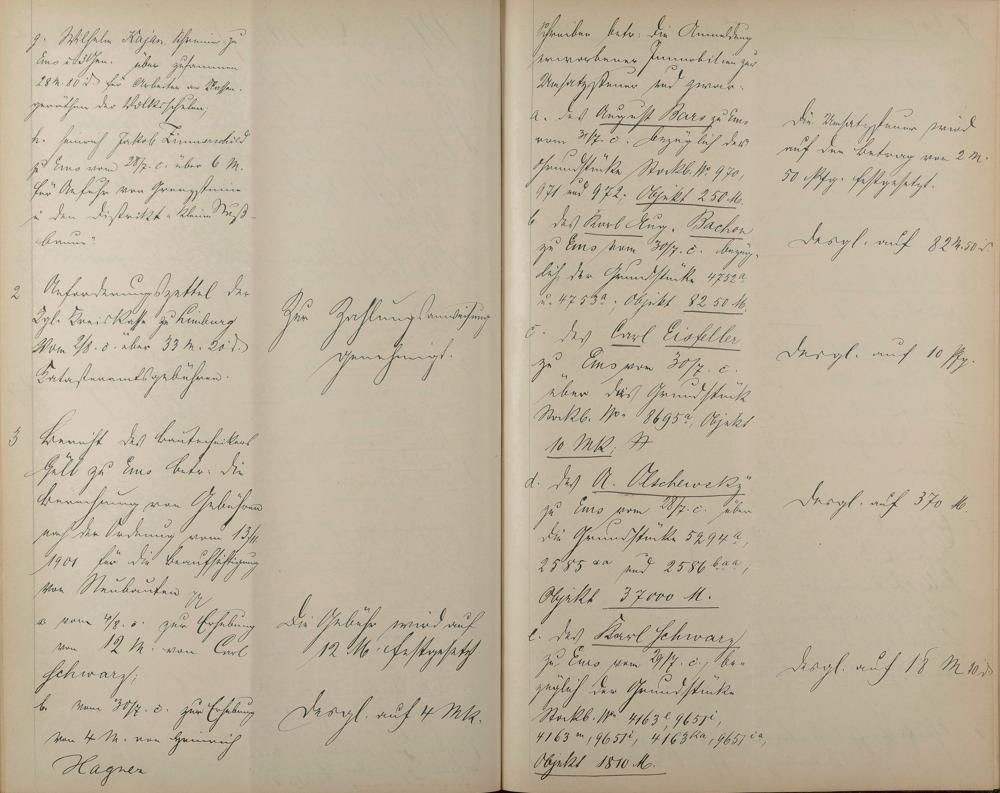 g. Wilhelm Kajan, Schreiner zu
Ems v. 3/8 über zusammen
28 M. 80 d. für Arbeiten an
geräthen der Volksschulen;
h. Heinrich Jakob
zu Ems vom 28/7. c. über 6 M.
für Anfuhr von Grenzsteinen
in den Distrikt "Klein Nuß-
baum"
2 Anforderungszettel der
Kgl. Kreiskasse zu Limburg
vom 2/8. c. über 33 M. 20 d.
Katasteramtsgebühren.
Zur Zahlungsanweisung
genehmigt.
3 Bericht des Bautechnikers
Göll zu Ems betr. die
Berechnung von Gebühren
nach der Ordnung vom 13/11
1901 für die Beaufsichtigung
von Neubauten
a vom 4/8. c. zur Erhebung
von 12 M. von Carl
Schwarz;
Die Gebühr wird auf
12 M. festgesetzt
b. vom 30/7. c. zur Erhebung
von 4 M. von Heinrich
Hagner
Desgl. auf 4 Mk.
Schreiben betr. die Anmeldung
erworbener Immobilien zur
Umsatzsteuer und zwar:
a. des August Bars zu Ems
vom 31/7. c. bezüglich des
Grundstücke Stockb. No 970,
971 und 972, Objekt 250 M.
Die Umsatzsteuer wird
auf den Betrag von 2 M.
50 Pfg. festgesetzt.
b des Karl Aug. Bachon
zu Ems vom 30/7. c. bezüg-
lich der Grundstücke 4752a
u. 4753a, Objekt 8250 M.
Desgl. auf 82 M. 50 d
c. des Carl Eisfeller
zu Ems vom 30/7. c.
über das Grundstück
Stockb. No 8695a, Objekt
10 Mk;
Desgl. auf 10 Pfg.
d. des A. Olschewsky
zu Ems vom 28/7. c. über
die Grundstücke 5294a,
2585aa und 2586baa,
Objekt 37000 M.
Desgl. auf 370 M.
e. des Karl Schwarz
zu Ems vom 29/7. c., be-
züglich der Grundstücke
Stockb. No 4163l, 9651i,
4163m, 9651i, 4163ka, 9651ia,
Objekt 1810 M.
Desgl. auf 18 M 10 d